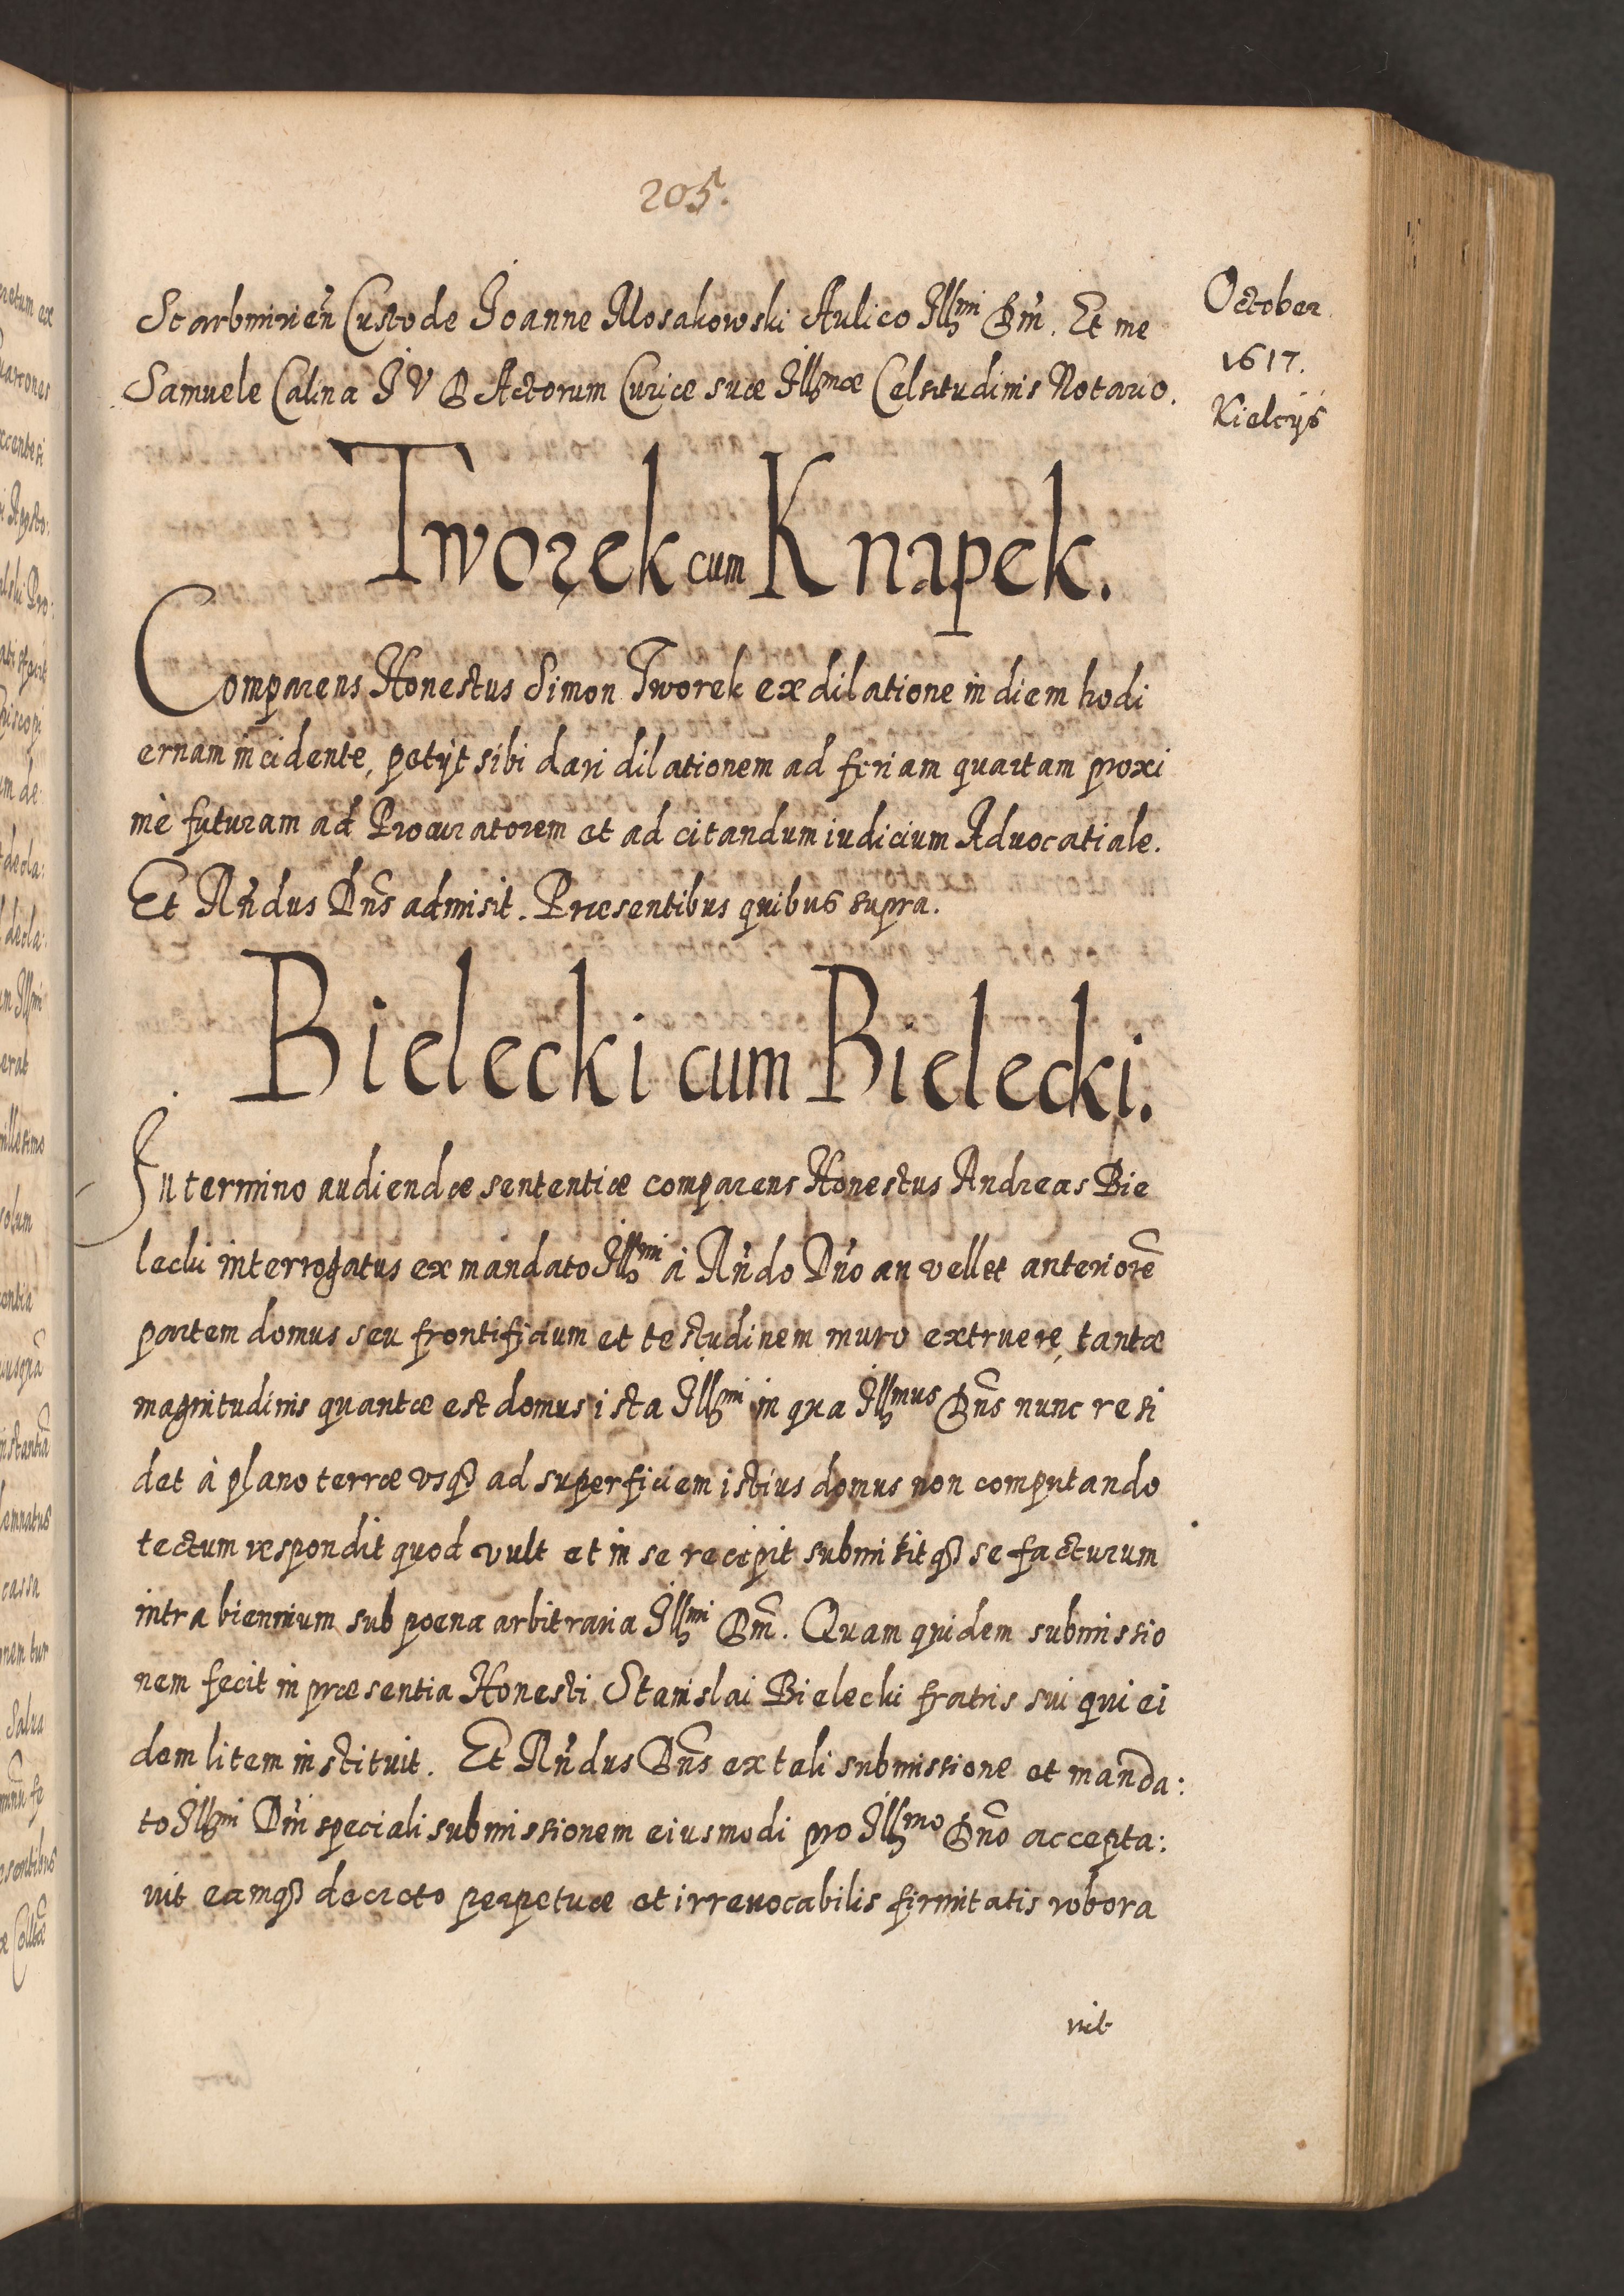 205.
October
1617.
Kielcijs
Scarbmirien̄ Custode Joanne Mosakowski Aulico Illmi Dni. Et me
Samuele Calina J V D Actorum Curiæ suæ Illmæ Celsitudinis Notario.
Tworek cum Knapek.
Comparens Honestus Simon Tworek ex dilatione in diem hodi
ernam incidente, petijt sibi dari dilationem ad feriam quartam proxi
mè futuram ad Procuratorem et ad citandum iudicium Advocatiale.
Et Rn̄dus Dn̄s admisit. Præsentibus quibus supra.
Bielecki cum Bielecki.
In termino audiendæ sententiæ comparens Honestus Andreas Bie
lecki interrogatus ex mandato Illmi à Rn̄do Dn̄o an vellet anteriorē
partem domus seu frontificium et testudinem muro extruere, tantæ
magnitudinis quantæ est domus ista Illmi in qua Illmus Dn̄s nunc resi
det à plano terræ vsqȝ ad superficiem istius domus non computando
tectum respondit quod vult et in se recipit submisitqȝ se facturum
intra biennium sub poena arbitraria Illmi Dn̄i. Quam quidem submissio
nem fecit in præsentia Honesti Stanislai Bielecki fratris sui qui ei
dem litem instituit. Et Rn̄dus Dn̄s ex tali submissione et manda:
to Illmi Dn̄i speciali submissionem eiusmodi pro Illmo Dn̄o accepta:
uit eamqȝ decreto perpetuæ et irreuocabilis firmitatis robora
uit